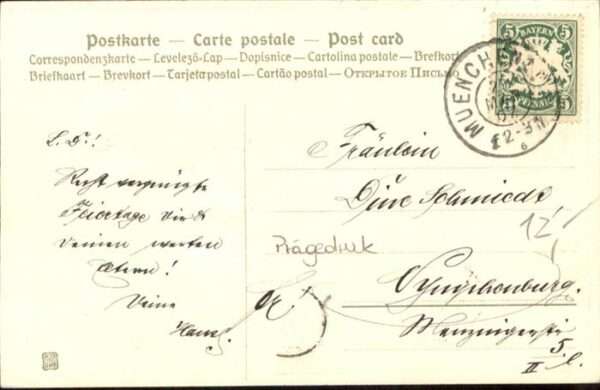 Postkarte — Carte postale — Post card
Correspondenzkarte — Levelező-Lap — Dopisnice — Cartolina postale — Brefkort
Briefkaart — Brevkort — Tarjeta postal — Cartão postal — ОТКРЫТОЕ ПИСЬМО
5 BAYERN 5
5 PFENNIG 5
MUENCHEN
12-3N
6
L. D.!
Recht vergnügte
Feiertage Dir &
Deinen werten
Eltern!
Deine
Fräulein
Schmiedt
Prägedruk
12,
Nymphenburg.
Menzingerstr
5.
II